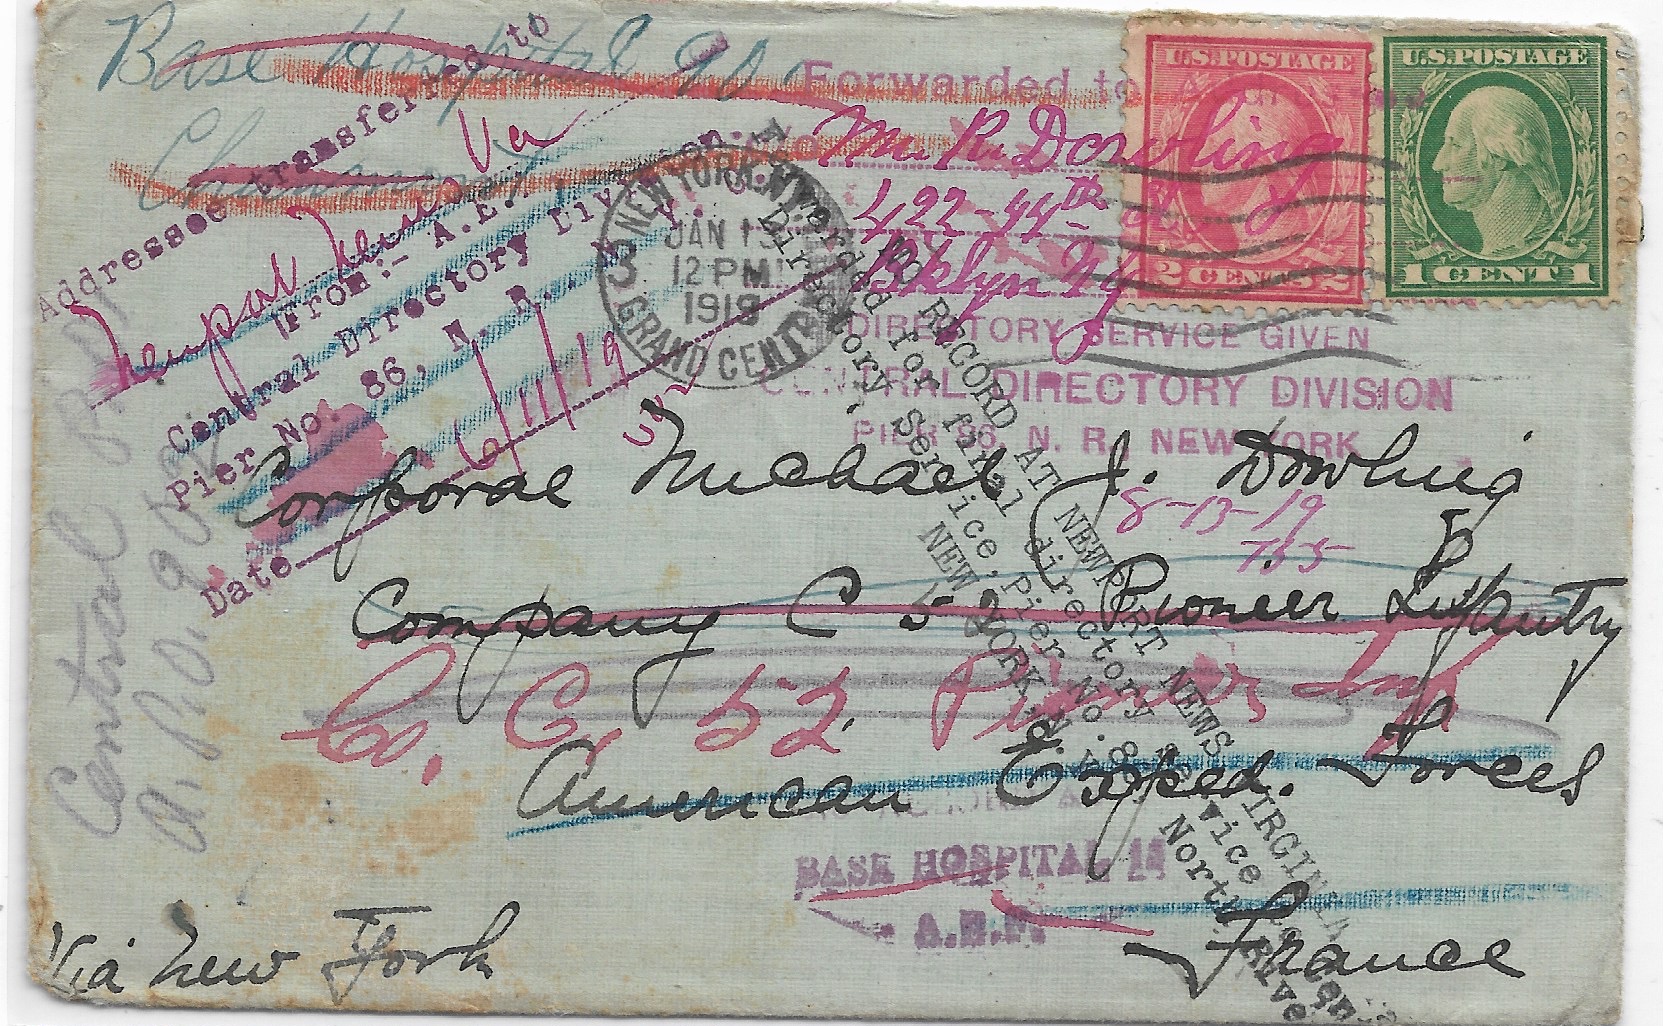 Base Hospital 90
Chaumont
Forwarded to
U.S. POSTAGE
2 CENTS 2
U.S. POSTAGE
1 CENT 1
Mr R. Dowling
422-44th St
Bklyn Ny
DIRECTORY SERVICE GIVEN
CENTRAL DIRECTORY DIVISION
PIER 86, N. R., NEW YORK
8-13-19
755
Addressee transferred to
Newport News Va
From:- A.E.F.
Central Directory Division
Pier No. 86, N. R., N. Y.
Date 6/11/19
NEW YORK, N.Y.
JAN 13
12 PM
1919
GRAND CENTRAL
3
NO RECORD AT NEWPORT NEWS VIRGINIA
Forwarded for final directory service
Directory Service, Pier No. 86 North River
NEW YORK, N.Y.
Corporal Michael J. Dowling
Company C 52 Pioneer Infantry
Co. C, 52 Pioneers Inf
American Exped. Forces
BASE HOSPITAL
A.E.F.
France
Via New York
Central